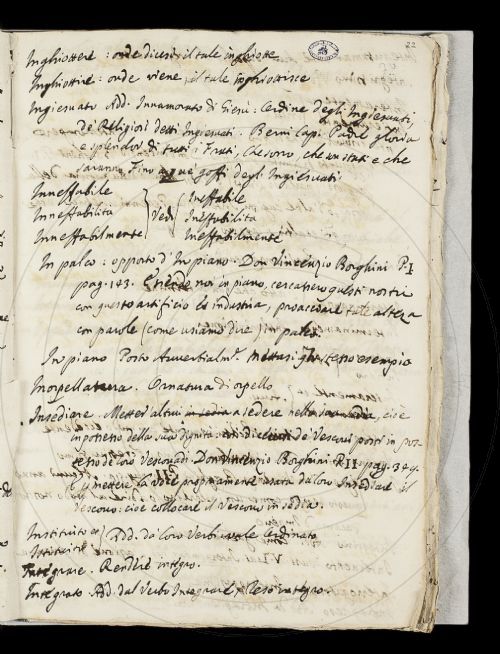 22
Inghiottere: onde dicesi il tale inghiotte
Inghiottire: onde viene, il tale inghiottisce
Ingiesuato Add. Innamorato di Giesù. Ordine degli Ingiesuati,
de' Religiosi detti Ingiesuati. Berni Cap. Padul gloria
e splendor di tutti i Frati, Che sono, che un stati e che
saranno, Fino a que' goffi degli Ingiesuati
Inneffabile
Inneffabilita
Inneffabilmente
Vedi
Ineffabile
Ineffabilita
Ineffabilmente
In palco: opposto d'In piano. Don Vincenzio Borghini P. I
pag. 143. noi in piano, cercassero questi nostri
con questo artificio ed industria, procacciare tale altezza
con parole (come usiamo dire) in palco.
In piano Posto Avverbialm.e mettasi esempio
Inorpellatura. Ornatura di orpello
Insediare. Metter' altrui a sedere nella sedia, cioè
in possesso della sua dignità de' Vescovi posti in pos
sesso de' loro Vescovadi. Don Vincenzio Borghini P. II. pag. 344.
E il mettere la voce propriamente usata da loro Insediare il
Vescovo: cioè collocare il Vescovo in sedia.
Instituito e
Istituito
Add. da' loro Verbi vale Ordinato
Integrare. Rendere integro.
Integrato Add. dal Verbo Integrare, Reso integro.